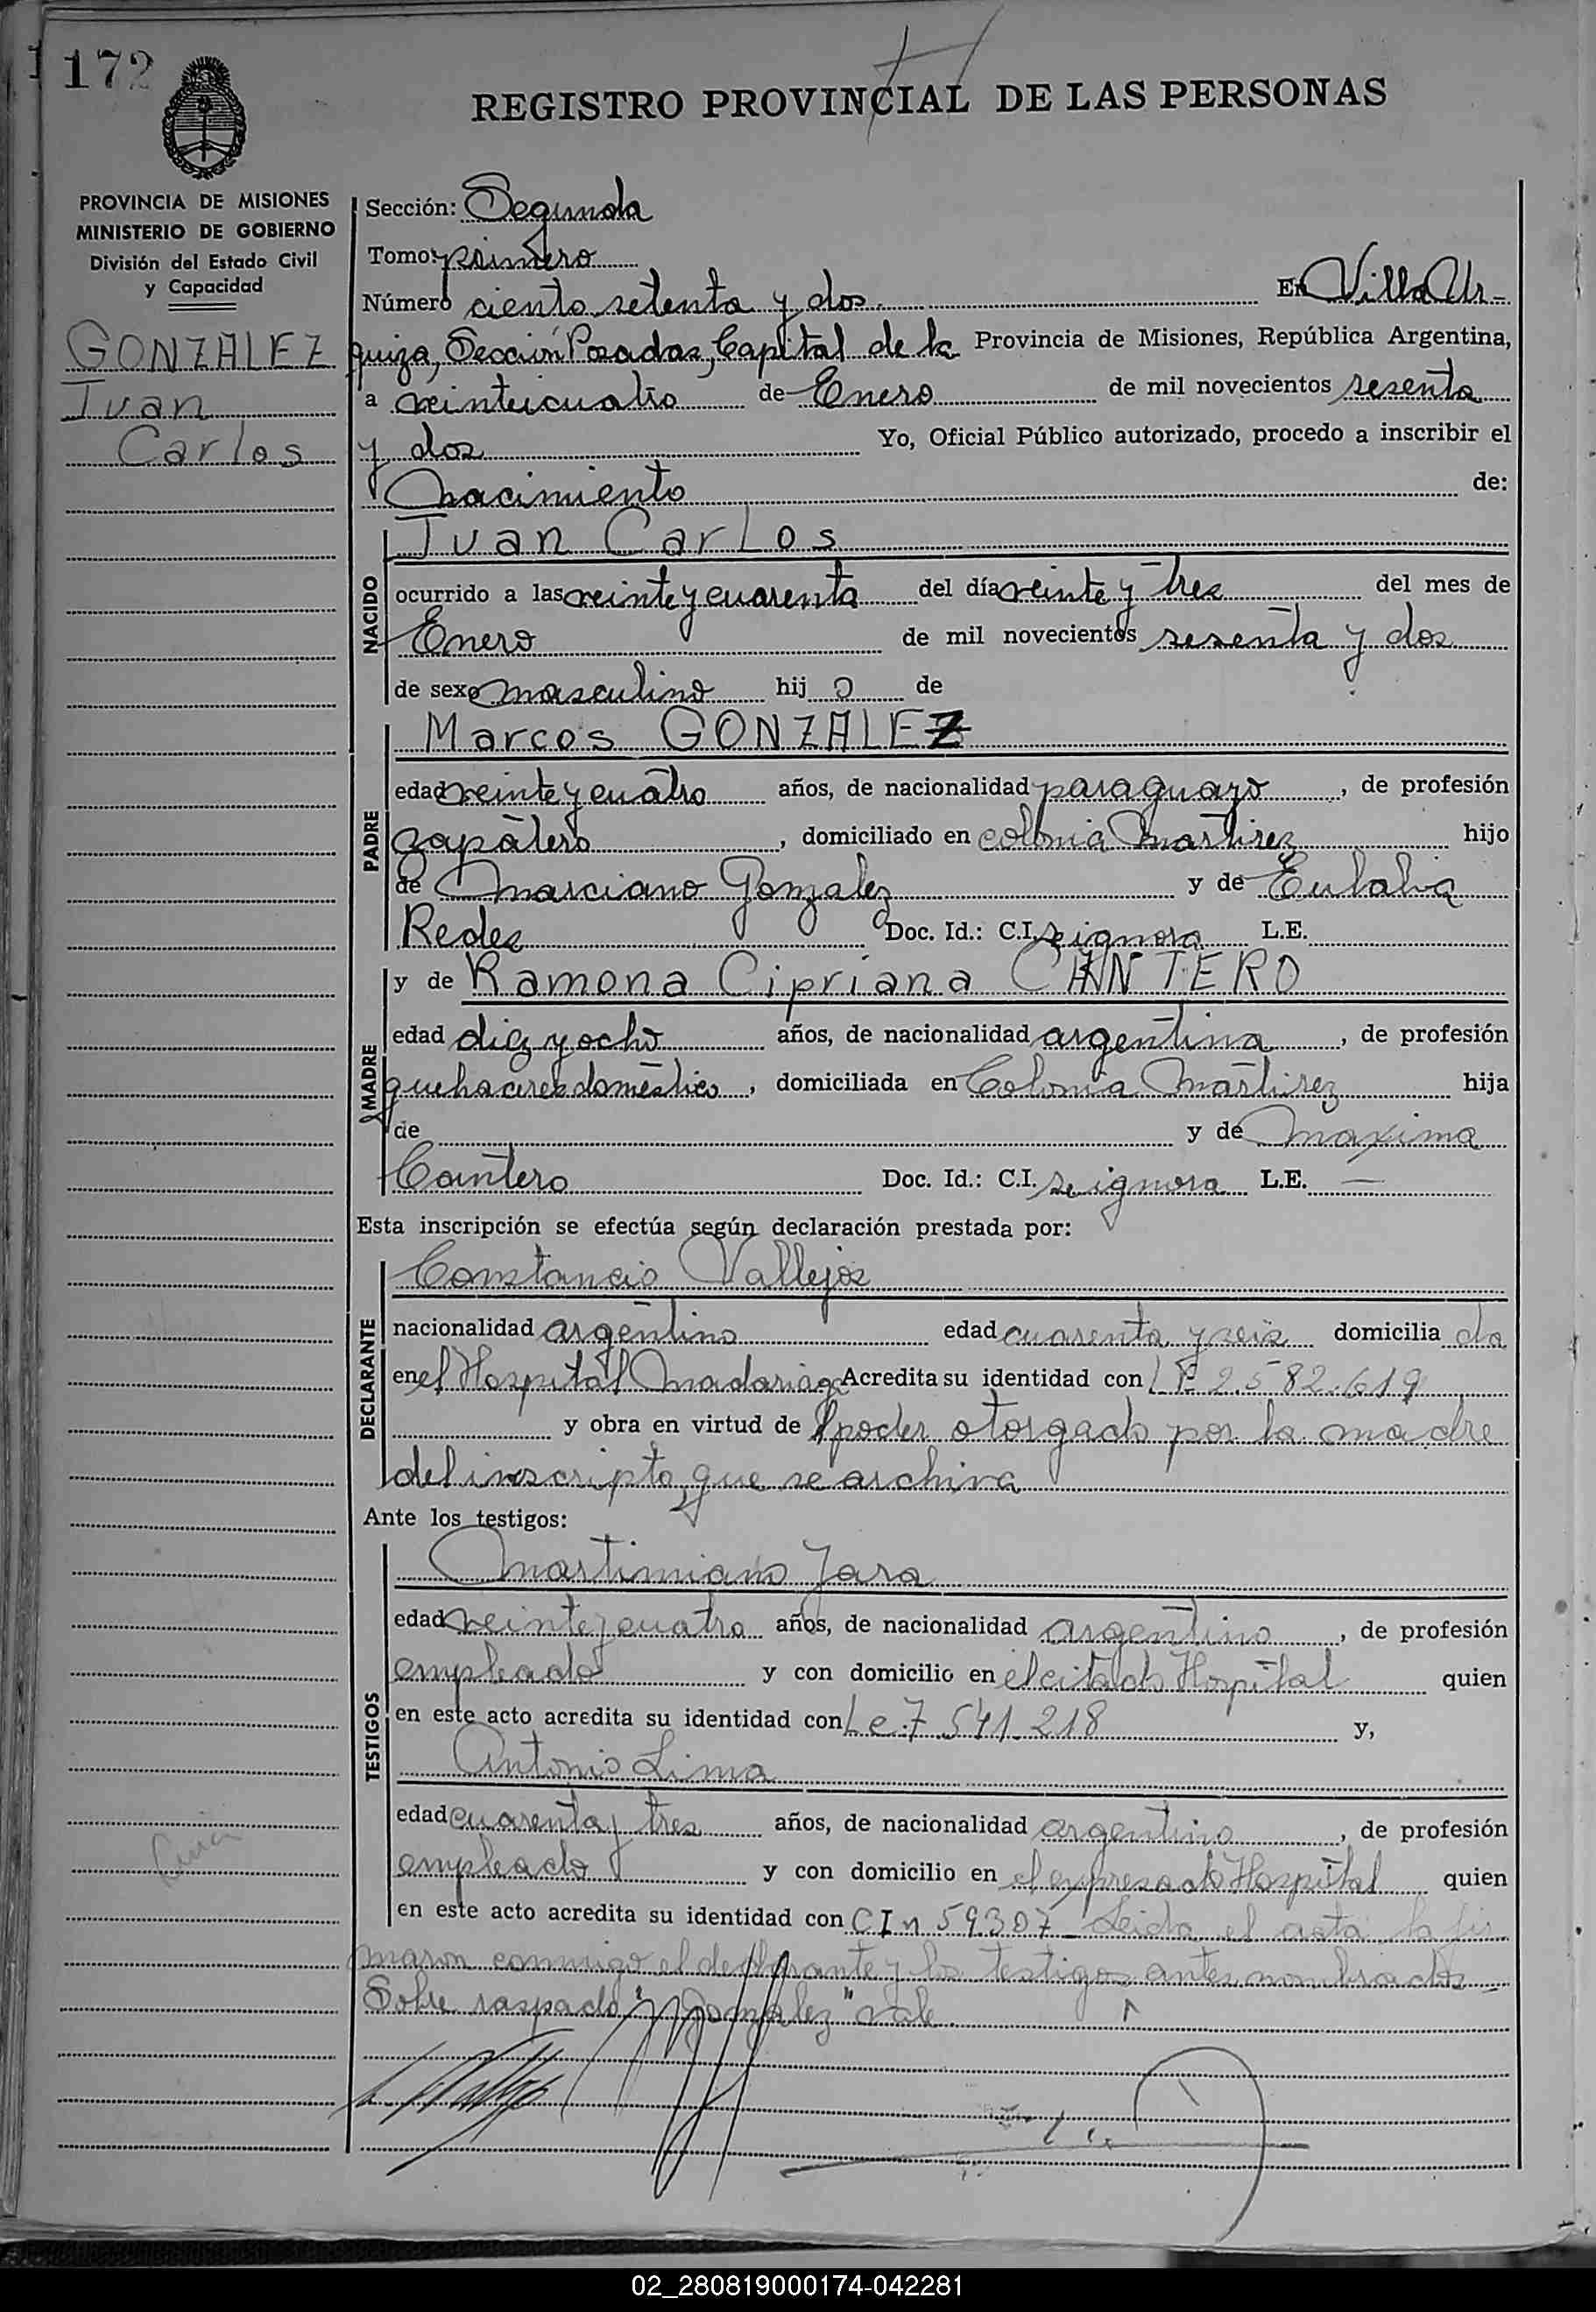 172
REGISTRO PROVINCIAL DE LAS PERSONAS
PROVINCIA DE MISIONES
MINISTERIO DE GOBIERNO
División del Estado Civil
y Capacidad
GONZALEZ
Juan
Carlos
Sección: Segunda
Tomo: primero
Número ciento setenta y dos En Villa Ur-
quiza, Sección Posadas, Capital de la Provincia de Misiones, República Argentina,
a veinticuatro de Enero de mil novecientos sesenta
y dos Yo, Oficial Público autorizado, procedo a inscribir el
Nacimiento de:
Juan Carlos
NACIDO
ocurrido a las veinte y cuarenta del día veinte y tres del mes de
Enero de mil novecientos sesenta y dos
de sexo masculino hij o de
Marcos GONZALEZ
PADRE
edad veinte y cuatro años, de nacionalidad paraguayo, de profesión
zapatero, domiciliado en colonia Martirez hijo
de Marciano Gonzalez y de Eulalia
Redes Doc. Id.: C.I. se ignora L.E.
y de Ramona Cipriana CANTERO
MADRE
edad diez y ocho años, de nacionalidad argentina, de profesión
quehaceres domestico, domiciliada en Colonia Martirez hija
de y de Maxima
Cantero Doc. Id.: C.I. se ignora L.E. —
Esta inscripción se efectúa según declaración prestada por:
Constancio Vallejos
DECLARANTE
nacionalidad argentino edad cuarenta y seis domicilia do
en el Hospital Madariaga Acredita su identidad con LE 2.582.619
y obra en virtud de poder otorgado por la madre
del inscripto, que se archiva
Ante los testigos:
Martimiano Jara
TESTIGOS
edad veinte y cuatro años, de nacionalidad argentino, de profesión
empleado y con domicilio en el citado Hospital quien
en este acto acredita su identidad con Le. 7.541.218 y,
Antonio Lima
edad cuarenta y tres años, de nacionalidad argentino, de profesión
empleado y con domicilio en el expresado Hospital quien
en este acto acredita su identidad con C I n 59307 - Leida el acta la fir
maron conmigo el declarante y los testigos antes nombrados -
Sobre raspado "Gonzalez" vale.
02_280819000174-042281